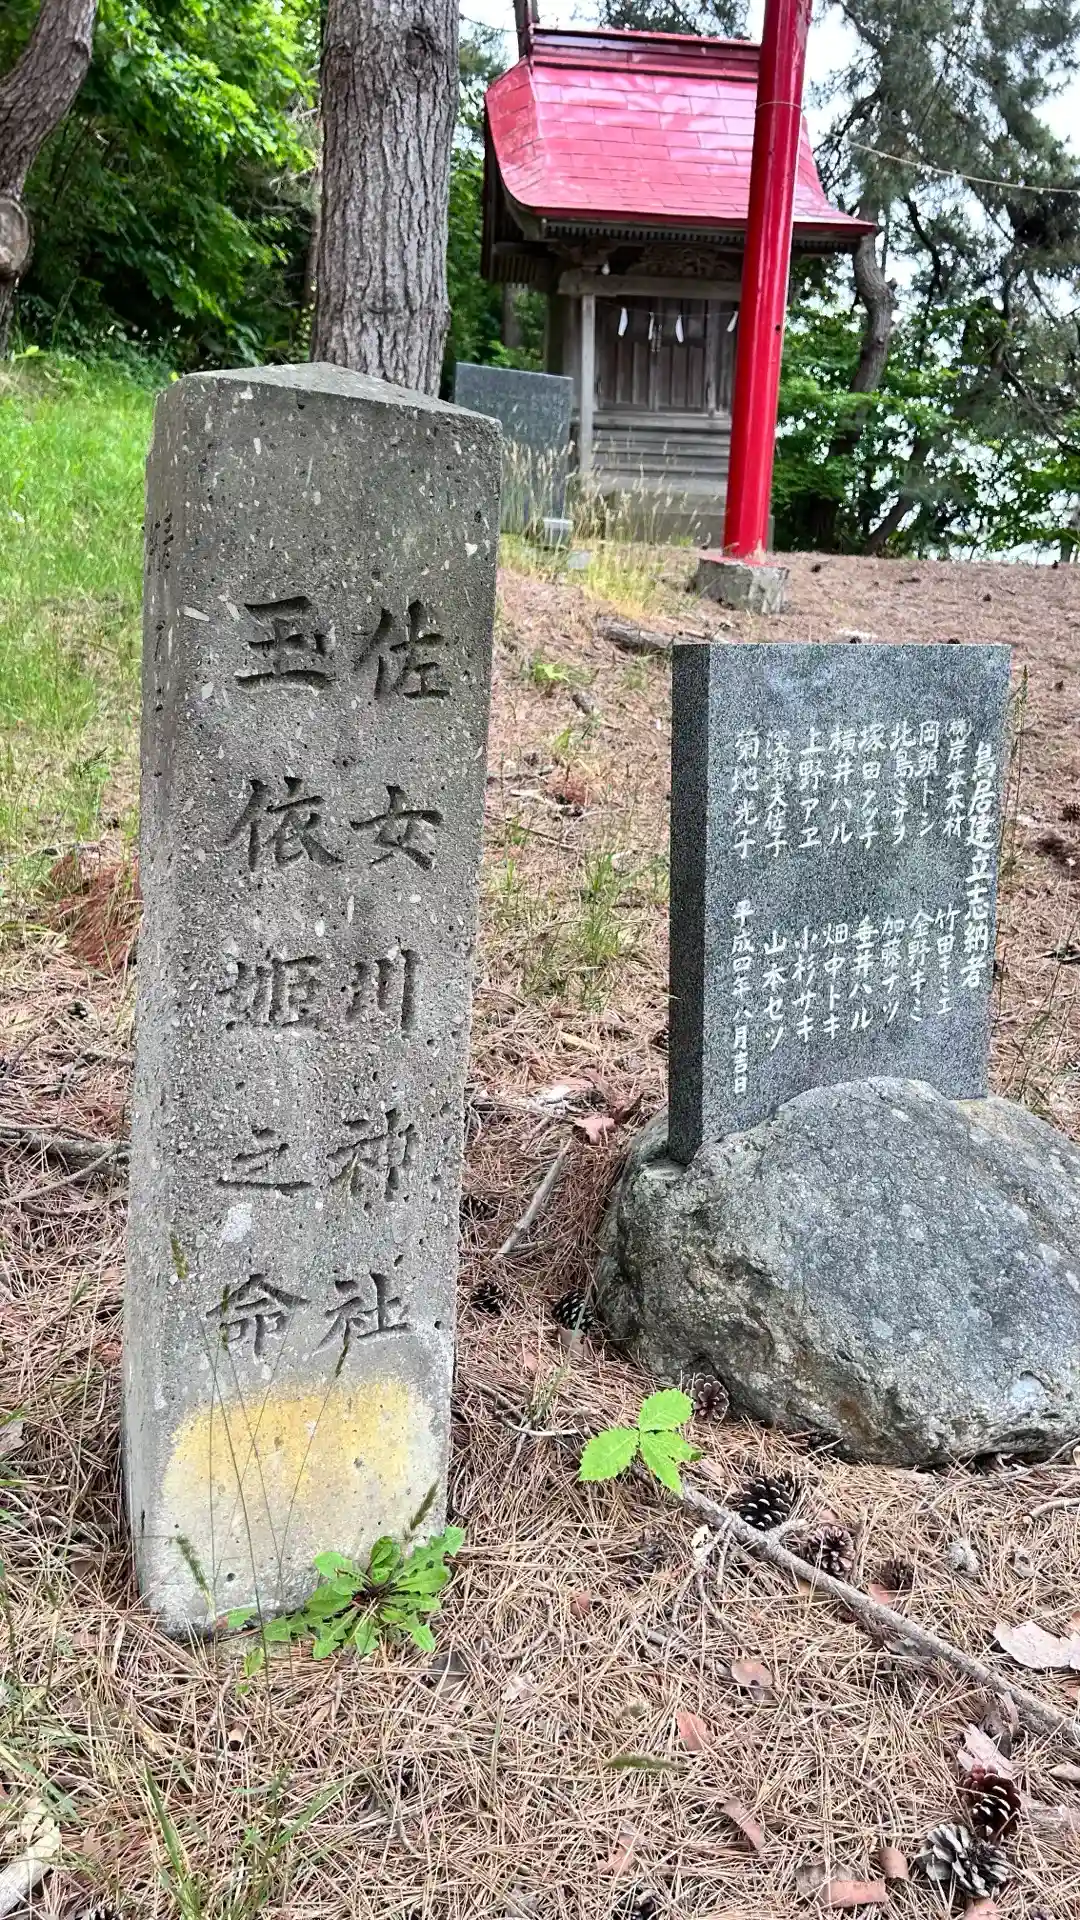 佐女川神社
玉依姫之命
鳥居建立志納者
㈱岸本木材
岡頭トシ
北島ミチヲ
塚田アツ子
横井ハル
上野アヱ
菊地光子
竹田キミエ
金野キミ
加藤ナツ
垂井ハル
畑中トキ
小杉サキ
山本セツ
平成四年八月吉日